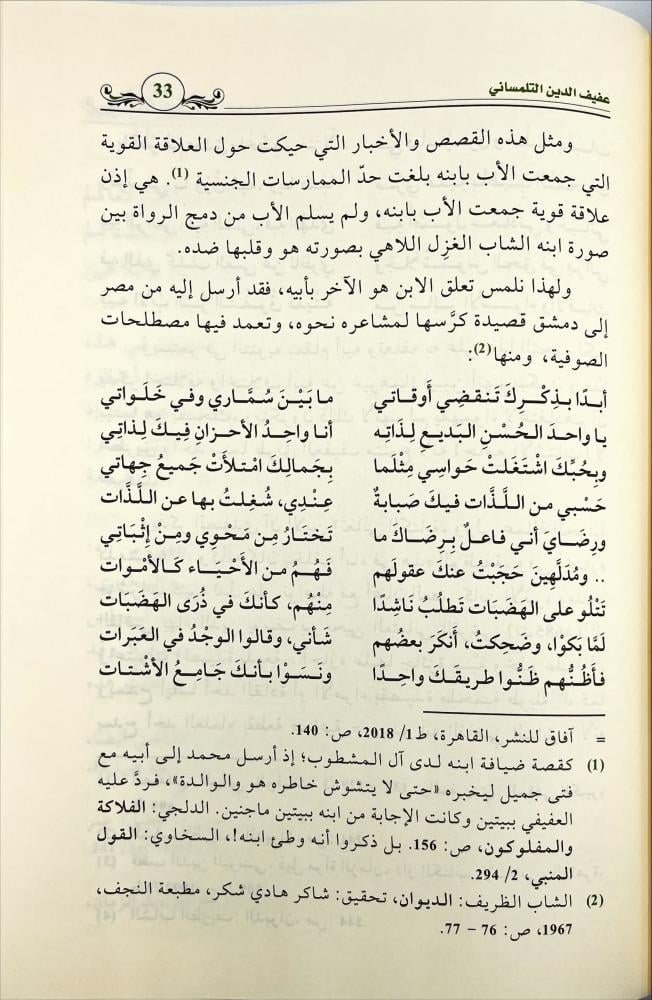 عفيف الدين التلمساني
33
ومثل هذه القصص والأخبار التي حيكت حول العلاقة القوية
التي جمعت الأب بابنه بلغت حدّ الممارسات الجنسية (1). هي إذن
علاقة قوية جمعت الأب بابنه، ولم يسلم الأب من دمج الرواة بين
صورة ابنه الشاب الغزِل اللاهي بصورته هو وقلبها ضده.
ولهذا نلمس تعلق الابن هو الآخر بأبيه، فقد أرسل إليه من مصر
إلى دمشق قصيدة كرَّسها لمشاعره نحوه، وتعمد فيها مصطلحات
الصوفية، ومنها(2):
أبدًا بذِكْرِكَ تَنقضِي أوقاتي ما بَيْنَ سُمَّاري وفي خَلَواتي
يا واحدَ الحُسْنِ البَديعِ لِذَاتِه أنا واحِدُ الأحزانِ فِيكَ لِذاتِي
وبِحُبِّكَ اشْتَغَلتْ حَواسِي مِثْلَما بِجَمالِكَ امْتلأتْ جَميعُ جِهاتي
حَسْبي من اللَّذَات فيكَ صَبابةٌ عِنْدِي، شُغِلتُ بها عن اللَّذَات
ورِضَايَ أني فاعلٌ بِرِضَاكَ ما تَختارُ مِن مَحْوِي ومِنْ إثْباتِي
.. ومُدَلَّهِينَ حَجَبْتُ عنكَ عقولَهم فَهُمُ من الأَحْيَاء كَالأَمْوات
تَتْلُو على الهَضَبات تَطلُبُ نَاشِدًا مِنْهُم، كأنكَ في ذُرَى الهَضَبات
لَمَّا بَكَوْا، وضَحِكتُ، أَنكَرَ بعضُهم شَأني، وقالوا الوجْدُ في العَبَرات
فأَظُنُّهم ظَنُّوا طريقكَ واحِدًا ونَسَوْا بأنكَ جَامِعُ الأشْتات
= آفاق للنشر، القاهرة، ط1/ 2018، ص: 140.
(1) كقصة ضيافة ابنه لدى آل المشطوب؛ إذ أرسل محمد إلى أبيه مع
فتى جميل ليخبره «حتى لا يتشوش خاطره هو والوالدة»، فردَّ عليه
العفيفي ببيتين وكانت الإجابة من ابنه ببيتين ماجنين. الدلجي: الفلاكة
والمفلوكون، ص: 156. بل ذكروا أنه وطئ ابنه!، السخاوي: القول
المنبي، 2/ 294.
(2) الشاب الظريف: الديوان، تحقيق: شاكر هادي شكر، مطبعة النجف،
1967، ص: 76 – 77.